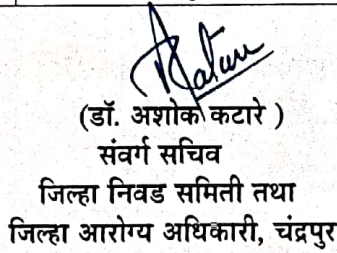 (डॉ. अशोक कटारे )
संवर्ग सचिव
जिल्हा निवड समिती तथा
जिल्हा आरोग्य अधिकारी, चंद्रपुर